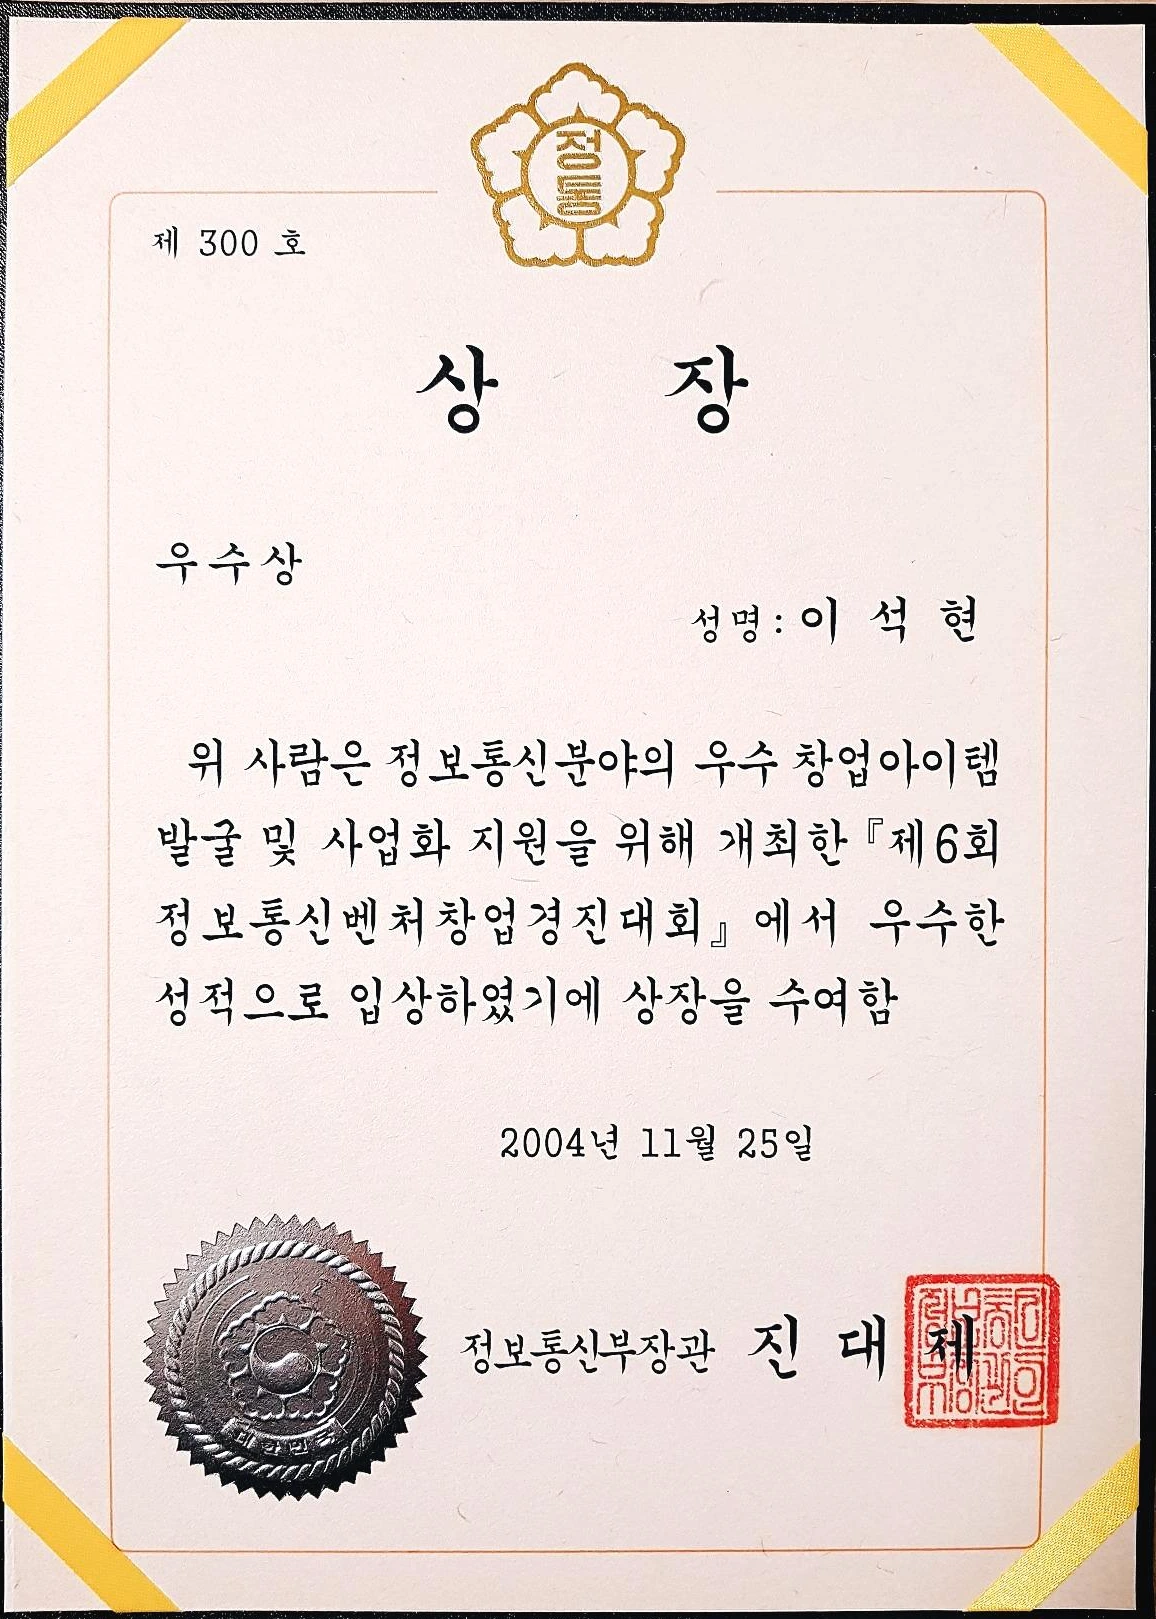 정통
제 300 호
상 장
우수상
성명: 이 석 현
위 사람은 정보통신분야의 우수 창업아이템
발굴 및 사업화 지원을 위해 개최한 『제6회
정보통신벤처창업경진대회』에서 우수한
성적으로 입상하였기에 상장을 수여함
2004년 11월 25일
대한민국
정보통신부장관 진 대 제